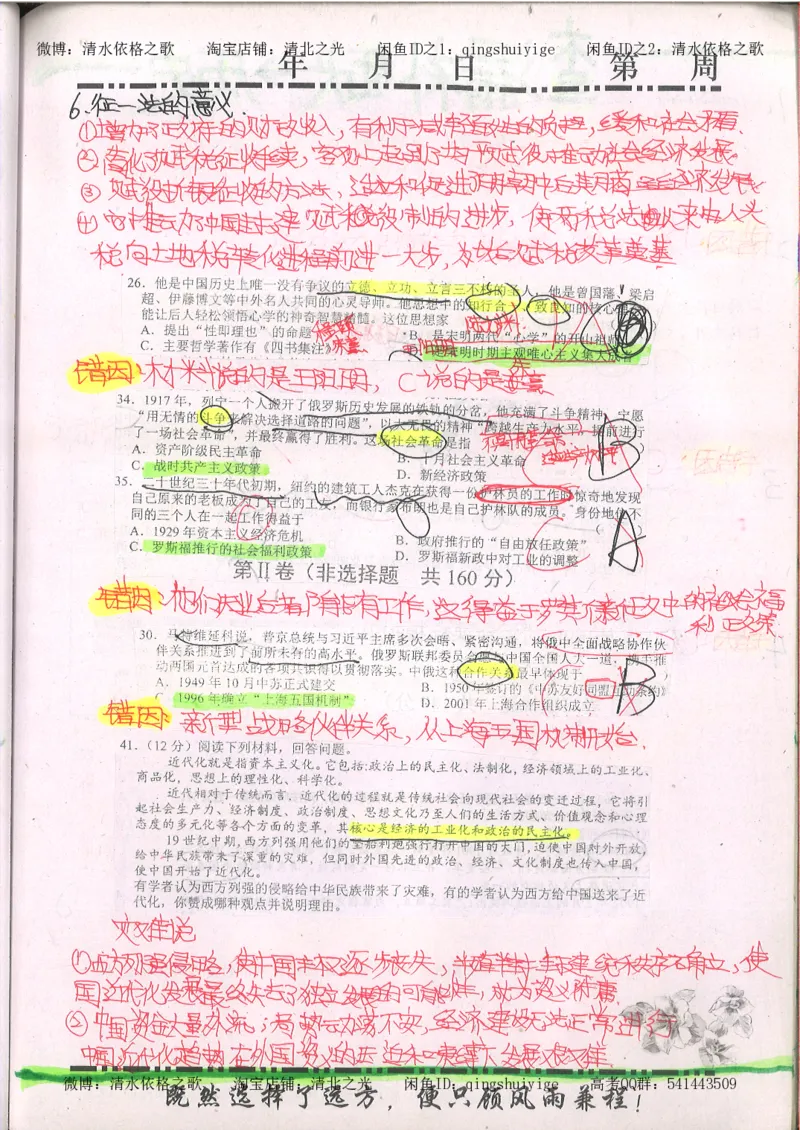 微博：清水依格之歌 淘宝店铺：清北之光 闲鱼ID之1：qingshuiyige 闲鱼ID之2：清水依格之歌
年 月 日 第 周
6.征一法的意义.
①增加了政府的财政收入，有利于减轻百姓的负担，缓和社会矛盾.
②简化了赋税征收手续，客观上起到了均平赋役，推动社会经济发展.
④它推动了中国 赋税 制的进步，使两税法 以来由人头
税向土地税转化进程前进一大步，
26．他是中国历史上唯一没有争议的立德、立功、立言三不朽的圣人，他是曾国藩、梁启
超、伊藤博文等中外名人共同的心灵导师。他思想中的知行合一、致良知的核心
能让后人轻松领悟心学的神奇智慧精髓。这位思想家
A．提出“性即理也”的命题 B．是宋明两代“心学”的开山祖师
C．主要哲学著作有《四书集注》 明时期主观唯心主义集大成者
错因：材料说的是王阳明，C说的是朱熹
34．1917年，列宁一个人搬开了俄罗斯历史发展的铁轨的分岔，他充满了斗争精神，宁愿
“用无情的斗争来解决选择道路的问题”，以大无畏的精神“跨越生产力水平，提前进行
了一场社会革命”，并最终赢得了胜利。这场社会革命是指
A．资产阶级民主革命 B．十月社会主义革命
C．战时共产主义政策 D．新经济政策
35．二十世纪三十年代初期，纽约的建筑工人杰克在获得一份护林员的工作时惊奇地发现
自己原来的老板成为了自己的工友，而银行家布朗也是自己护林队的成员。身份地位不
同的三个人在一起工作得益于
A．1929年资本主义经济危机 B．政府推行的“自由放任政策”
C．罗斯福推行的社会福利政策 D．罗斯福新政中对工业的调整
第Ⅱ卷（非选择题 共160分）
错因：他们失业后都有工作，这得益于罗斯福新政中的社会福
利政策
30．马特维延科说，普京总统与习近平主席多次会晤、紧密沟通，将俄中全面战略协作伙
伴关系推进到了前所未有的高水平。俄罗斯联邦委员会愿与中国全国人大一道，携手推
动两国元首达成的各项共识得以贯彻落实。中俄这种合作关系最早体现于
A．1949年10月中苏正式建交 B．1950年签订的《中苏友好同盟互助条约》
C．1996年确立“上海五国机制” D．2001年上海合作组织成立
错因：新型战略伙伴关系，从上海五国机制开始.
41．（12分）阅读下列材料，回答问题。
近代化就是指资本主义化。它包括：政治上的民主化、法制化，经济领域上的工业化、
商品化，思想上的理性化、科学化。
近代相对于传统而言，近代化的过程就是传统社会向现代社会的变迁过程，它将引
起社会生产力、经济制度、政治制度、思想文化乃至人们的生活方式、价值观念和心理
态度的多元化等各个方面的变革，其核心是经济的工业化和政治的民主化。
19世纪中期，西方列强用他们的坚船利炮强行打开中国的大门，迫使中国对外开放，
给中华民族带来了深重的灾难，但同时外国先进的政治、经济、文化制度也传入中国，
使中国开始了近代化。
有学者认为西方列强的侵略给中华民族带来了灾难，有的学者认为西方给中国送来了近
代化，你赞成哪种观点并说明理由。
灾难说
①西方列强侵略，使中国主权逐步丧失，半殖民地半封建统治秩序确立，使
国近代化发展最终失去了独立发展的可能性，成为列强附庸
②中国资金大量外流；者 动荡不安，经济建设无法正常进行
微博：清水依格之歌 淘宝店铺：清北之光 闲鱼ID：qingshuiyige 高考QQ群：541443509
既然选择了远方，便只顾风雨兼程！